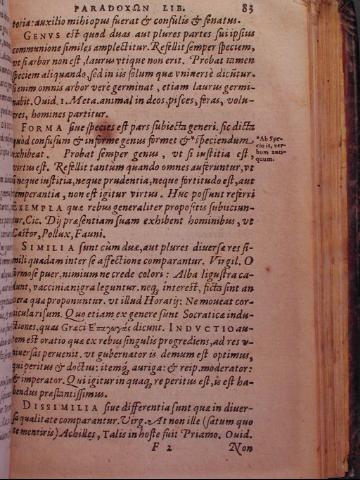 PARADOXΩN LIB. 83
toria: auxilio mihi opus fuerat & consilis & senatus.
GENVS est quod duas aut plures partes sui ipsius
communione similes amplectitur. Refellit semper speciem,
vt si arbor non est, laurus vtique non erit. Probat tamen
speciem aliquando, sed in iis solum quæ vniuersè dicūtur.
Si enim omnis arbor verè germinat, etiam laurus germi-
nabit. Ouid. 1. Meta. animal in deos, pisces, feras, volu-
cres, homines partitur.
FORMA siue species est pars subiecta generi. sic dicta
quòd confusum & informe genus formet & *speciendum
exhibeat. Probat semper genus, vt si iustitia est,
virtus est. Refellit tantum quando omnes auferuntur, vt
neque iustitia, neque prudentia, neque fortitudo est, aut
temperantia, non est igitur virtus. Huc possunt referri
EXEMPLA quæ rebus generaliter propositis subiiciun-
tur, Cic. Dij præsentiam suam exhibent hominibus, vt
Castor, Pollux, Fauni.
*Ab Spe-
cio is, ver-
bum anti-
quum.
SIMILIA sunt cùm duæ, aut plures diuersæ res si-
mili quadam inter se affectione comparantur. Virgil. O
formose puer, nimium ne crede colori: Alba ligustra ca-
dunt, vaccinia nigra leguntur. neq; interest, ficta sint an
vera quæ proponuntur. vt illud Horatij: Ne moueat cor-
nicula risum. Quo etiam ex genere sunt Socraticæ indu-
ctiones, quas Græci Επαγωγὰς dicunt. INDVCTIO au-
tem est oratio quæ ex rebus singulis progrediens, ad res v-
niuersas peruenit. vt gubernator is demum est optimus,
qui peritus & doctus: itemq; auriga: & reip. moderator:
& imperator. Qui igitur in quaq; re peritus est, is est ha-
bendus præstantissimus.
DISSIMILIA siue differentia sunt quæ in diuer-
sa qualitate comparantur. Virg. At non ille (satum quo
te mentiris) Achilles, Talis in hoste fuit Priamo. Ouid.
F 2 Non